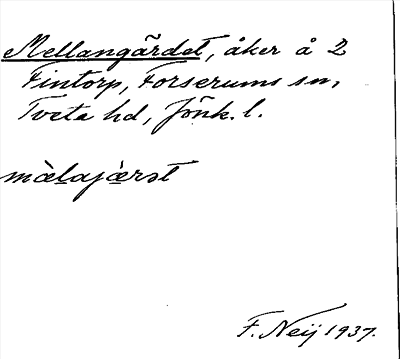 Mellangärdet, åker å 2
Fintorp, Forserums sn,
Tveta hd, Jönk. l.
mæ̀lajæ̀rət
F. Neij 1937.